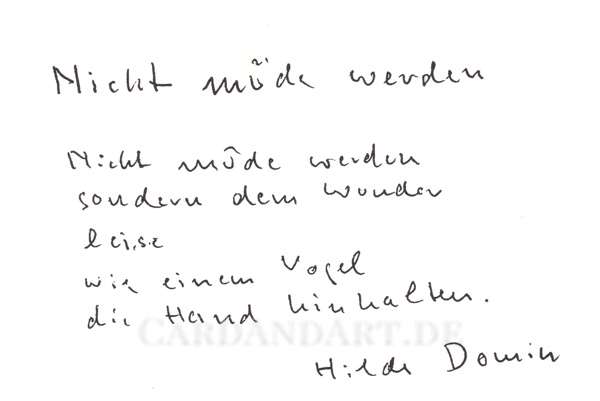 Nicht müde werden
Nicht müde werden
sondern dem Wunder
leise
wie einem Vogel
die Hand hinhalten.
CARDANDART.DE
Hilde Domin